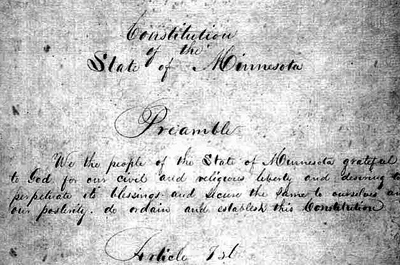 Constitution
of the
State of Minnesota
Preamble
We the people of the State of Minnesota grateful
to God for our civil and religious liberty and desiring to
perpetuate its blessings and secure the same to ourselves and
our posterity. do ordain and establish this Constitution
Article 1st